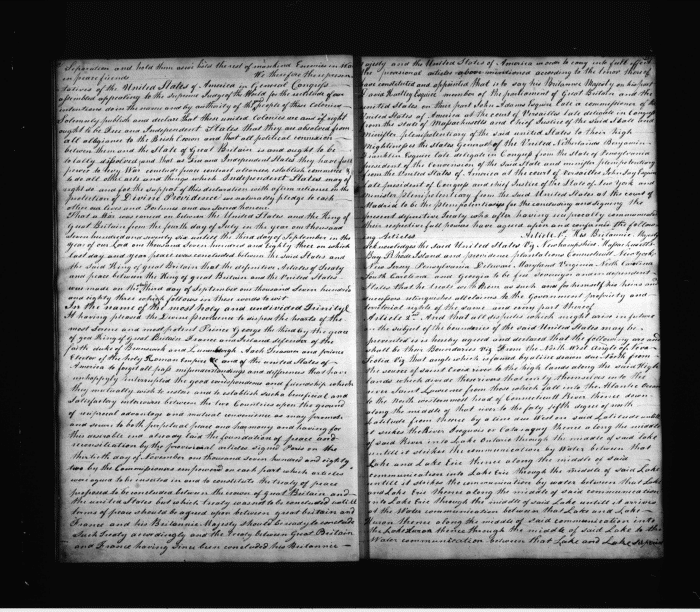 Separation and hold them as we hold the rest of mankind Enemies in War
in peace friends We therefore the represen
tatives of the United States of America in General Congress
assembled appealing to the Supreme Judge of the World for the rectitude of our
intentions do in the name and by authority of the people of these Colonies
Solemnly publish and declare that these united Colonies are and of right
ought to be Free and Independent States that they are absolved from
all allegiance to the British Crown and that all political connexion
between them and the State of Great Britain is and ought to be
totally dissolved and that as Free and Independent States they have full
power to levy War conclude peace contract alliances establish commerce &
to do all other acts and things which Independent States may of
right do and for the support of this declaration with a firm reliance on the
protection of Divine Providence we mutually pledge to each
other our lives and Fortunes and our sacred honour
That a War was carried on between the United States and the King of
Great Britain from the fourth day of July in the year one thousand
seven hundred and seventy six until the third day of September in the
year of our Lord one thousand seven hundred and eighty three on which
last day and year peace was concluded between the said States and
the said King of great Britain that the definitive Articles of Treaty
and peace between the King of great Britain and the United States
was made on the third day of September one thousand seven hundred
and eighty three which follows in these words to wit
In the name of the most holy and undivided Trinity
It having pleased the divine providence to dispose the hearts of the
most Serene and most potent Prince George the third by the grace
of god King of great Britain France and Ireland defender of the
faith duke of Brunswick and Lunenburgh Arch Treasurer and prince
Elector of the holy Roman Empire &c and of the united States of
America to forget all past misunderstandings and differences that have
unhappily interrupted the good correspondence and friendship which
they mutually wish to restore and to establish such beneficial and
Satisfactory intercourse between the two Countries upon the ground
of reciprocal advantage and mutual convenience as may promote
and secure to both perpetual peace and harmony and having for
this desirable end already laid the foundation of peace and
reconciliation by the provisional articles signed Paris on the
thirtieth day of November one thousand seven hundred and eighty
two by the Commissioners empowered on each part which articles
were agreed to be inserted in and to constitute the treaty of peace
proposed to be concluded between the crown of great Britain and
the united States but which treaty was not to be concluded until
terms of peace should be agreed upon between great britain and
France and his Britannic Majesty should be ready to conclude
Such Treaty accordingly and the Treaty between Great Britain
and France having since been concluded his Britannic
Majesty and the United States of America in order to carry into full effect
the provisional articles above mentioned according to the tenor thereof
have constituted and appointed that is to say his Britannic Majesty on his part
David Hartley Esquire member of the parliament of Great Britain and the
united States on their part John Adams Esquire late a commissioner of the
united States of America at the court of Versailles late delegate in Congress
from the State of Massachusetts and Chief Justice of the said State and
Minister plenipotentiary of the said united States to their high
Mightinesses the States General of the United Netherlands Benjamin
Franklin Esquire late delegate in Congress from the State of Pensylvania
president of the convention of the said State and minister plenipotentiary
from the United States of America at the court of Versailles John Jay Esquire
late president of Congress and chief Justice of the State of New York and
minister plenipotentiary from the said United States at the court of
Madrid to be the plenipotentiaries for the concluding and signing the
present definitive treaty who after having reciprocally communicated
their respective full powers have agreed upon and confirmed the following
Articles Article 1st His Britannic Majesty
Acknowledges the said United States Viz Newhampshire Massachusetts
Bay Rhode Island and providence plantations Connecticut New york
New Jersey Pennsylvania Delaware Maryland Virginia North Carolina
South Carolina and Georgia to be free sovereign and independent
States that he treats with them as such and for himself his heirs and
successors relinquishes all claims to the Government property and
territorial rights of the same and every part thereof
Article 2nd And that all disputes which might arise in future
on the subject of the boundaries of the said United States may be
prevented it is hereby agreed and declared that the following are and
shall be their Boundaries Viz From the North West Angle of Nova
Scotia Viz that angle which is formed by a line drawn due North from
the source of saint Croix river to the high lands along the said High
lands which divide these rivers that empty themselves into the
river Saint Lawrence from those which fall into the Atlantic Ocean
to the North westernmost head of Connecticut River thence down
along the middle of that river to the forty fifth degree of north
latitude from thence by a line due West on said Latitude until
it strikes the River Iroquois or Cataraquy thence along the middle
of said River into Lake Ontario through the middle of said lake
until it strikes the communication by Water between that
Lake and Lake Erie thence along the middle of said
communication into Lake Erie through the middle of said Lake
until it strikes the communication by water between that Lake
and Lake Erie thence along the middle of said communication
into Lake Erie through the middle of said Lake until it arrives
at the Water communication between that Lake and Lake
Huron thence along the middle of said communication into
the Lake Huron thence through the middle of said Lake to the
Water communication between that Lake and Lake Superior